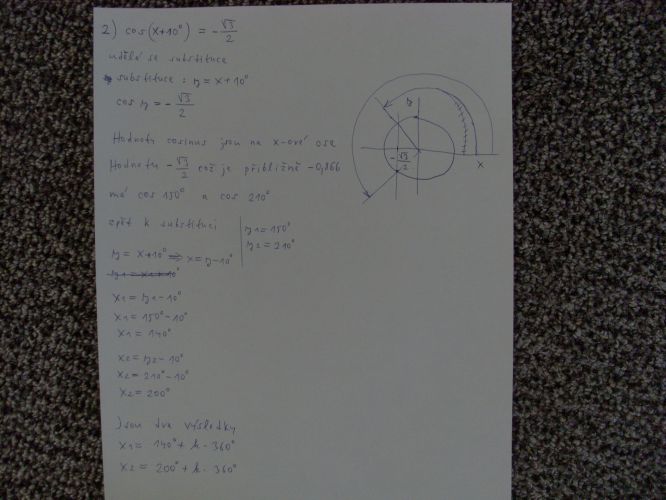 2) cos(x+10°) = -√3/2
udělá se substituce
substituce : y = x+10°
cos y = -√3/2
Hodnoty cosinus jsou na x-ové ose
Hodnotu -√3/2 což je přibližně -0,866
má cos 150° a cos 210°
zpět k substituci
y1 = 150°
y2 = 210°
y = x+10° ⇒ x = y-10°
y1 = x1 + 10°
x1 = y1 - 10°
x1 = 150° - 10°
x1 = 140°
x2 = y2 - 10°
x2 = 210° - 10°
x2 = 200°
Jsou dva výsledky
x1 = 140° + k · 360°
x2 = 200° + k · 360°
y
-√3/2
x